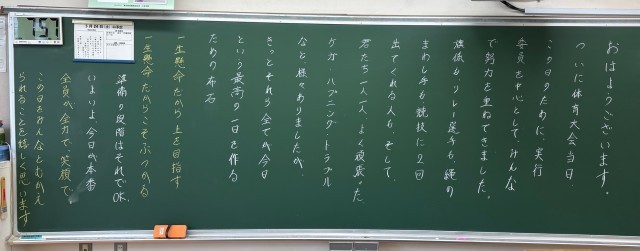 おはようございます。
ついに体育大会当日。
この日のために、実行
委員を中心として、みんな
で努力を重ねてきました。
旗係も、リレー選手も、縄の
まわし手も、競技に2回
出てくれる人も、そして、
君たち一人一人、よく頑張った。
ケガ・ハプニング・トラブル
など様々ありましたが、
きっとそれら全てが今日
という最高の一日を作る
ための布石
一生懸命だから上を目指す
一生懸命だからこそぶつかる
準備の段階はそれでOK.
いよいよ、今日が本番
全員が全力で、笑顔で、
この日をみんなとむかえ
られることを嬉しく思います